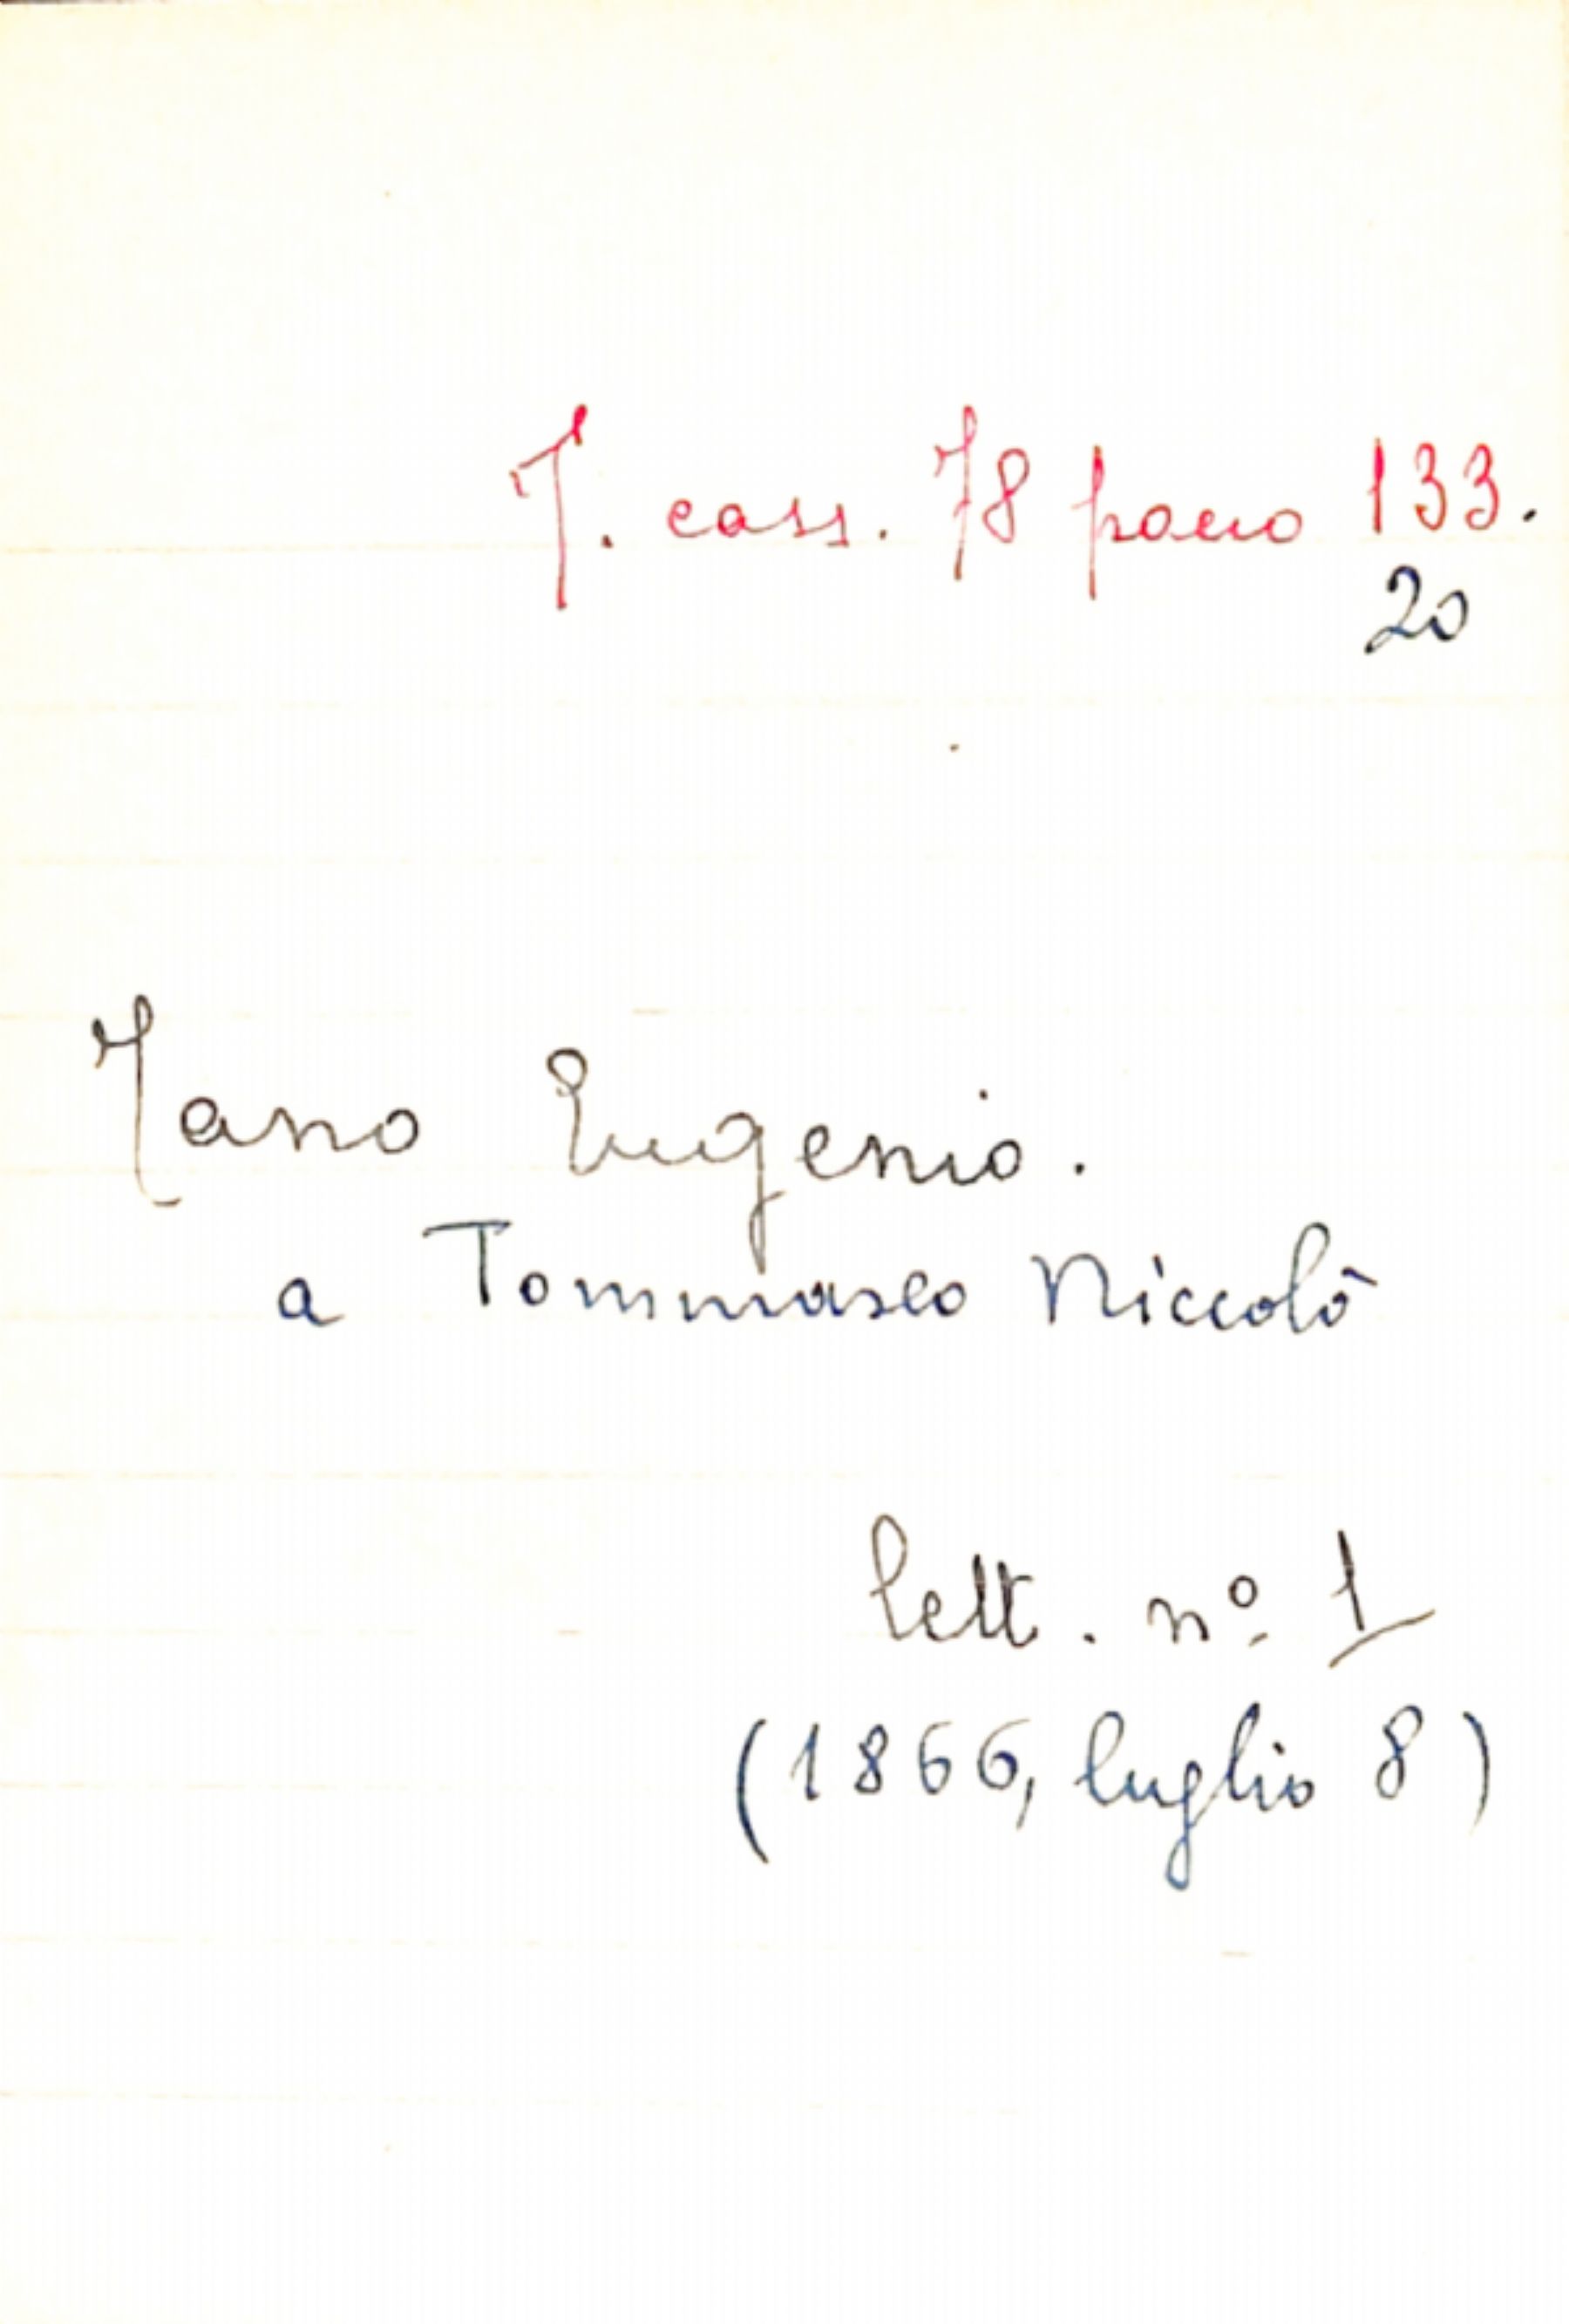 T. cass. 78 pacco 133.
20
Tano Eugenio.
a Tommaseo Niccolò
lett. nº 1
(1866, luglio 8)